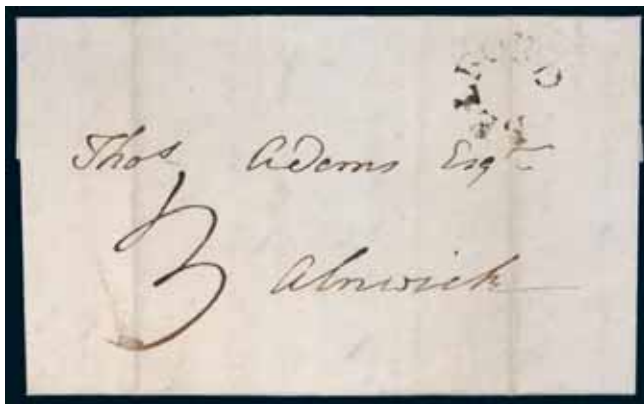 Thos Adams Esqr
3 Alnwick